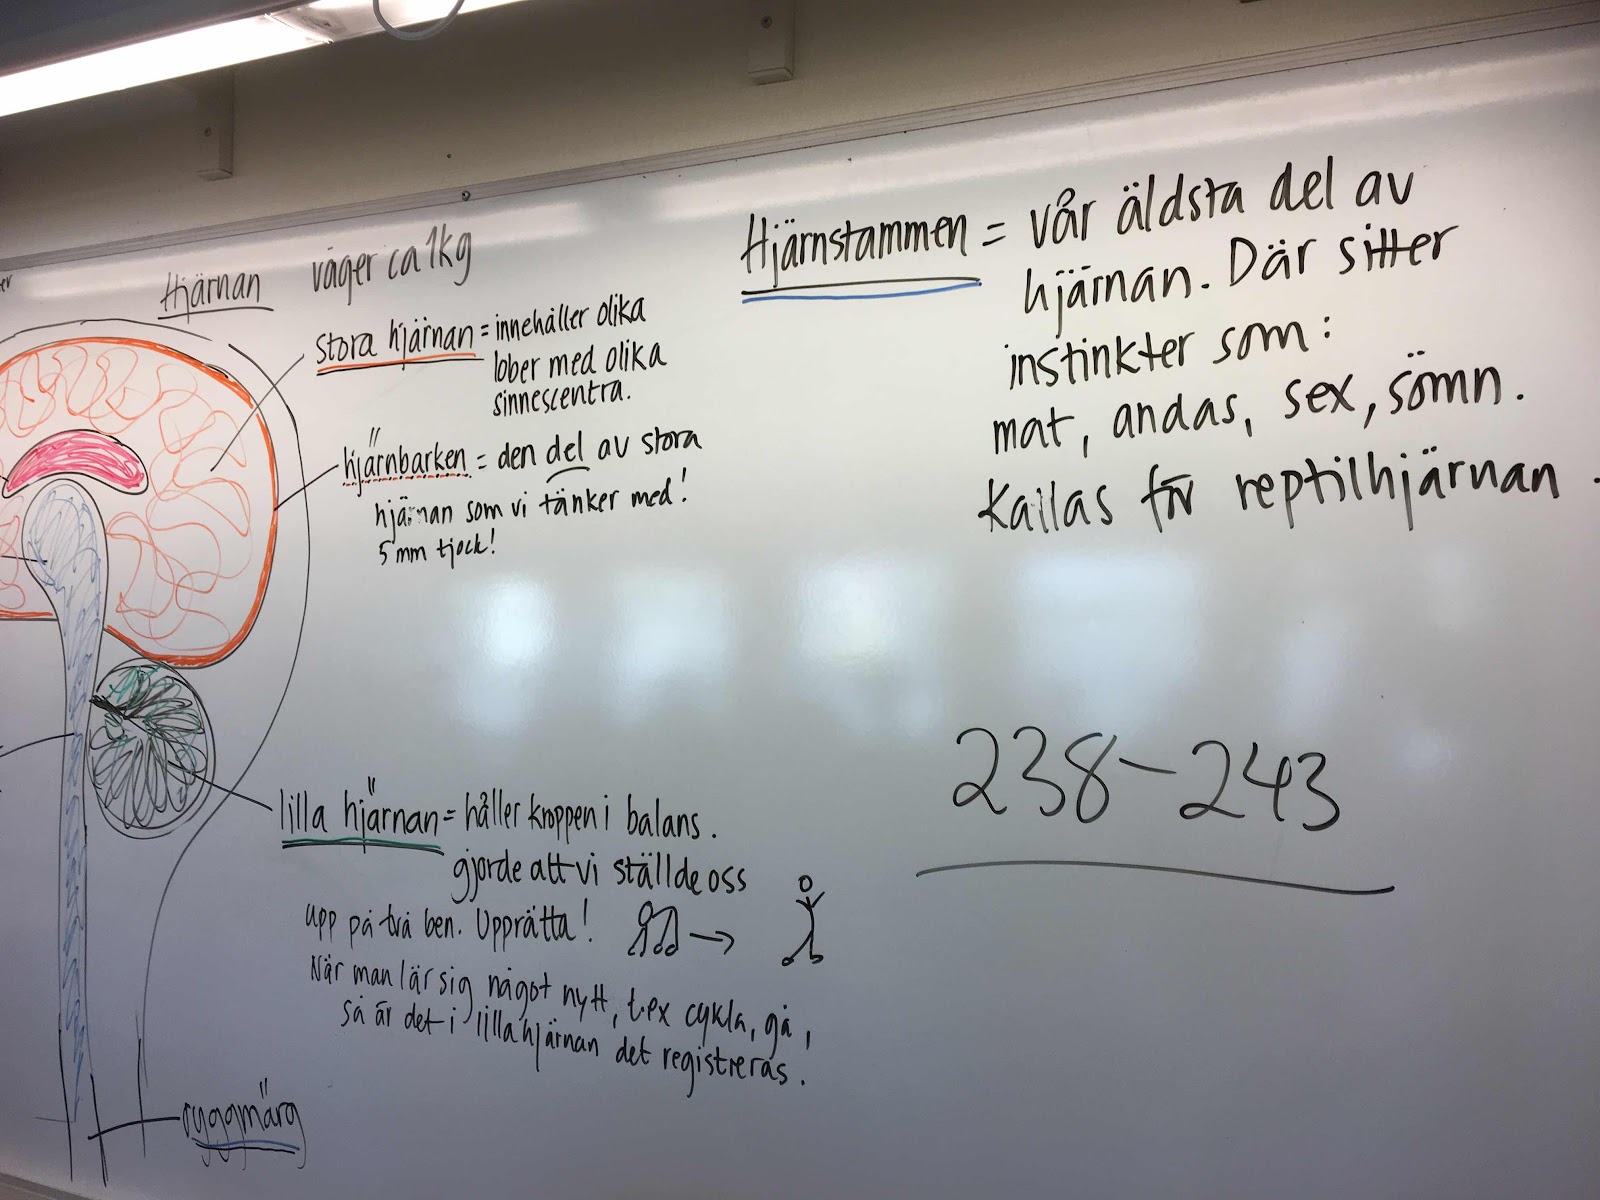 Hjärnan väger ca 1kg
stora hjärnan = innehåller olika
lober med olika
sinnescentra.
hjärnbarken = den del av stora
hjärnan som vi tänker med!
5 mm tjock!
lilla hjärnan = håller kroppen i balans.
gjorde att vi ställde oss
upp på två ben. Upprätta!
När man lär sig något nytt, t.ex cykla, gå,
så är det i lilla hjärnan det registreras.
ryggmärg
Hjärnstammen = vår äldsta del av
hjärnan. Där sitter
instinkter som:
mat, andas, sex, sömn.
Kallas för reptilhjärnan.
238-243